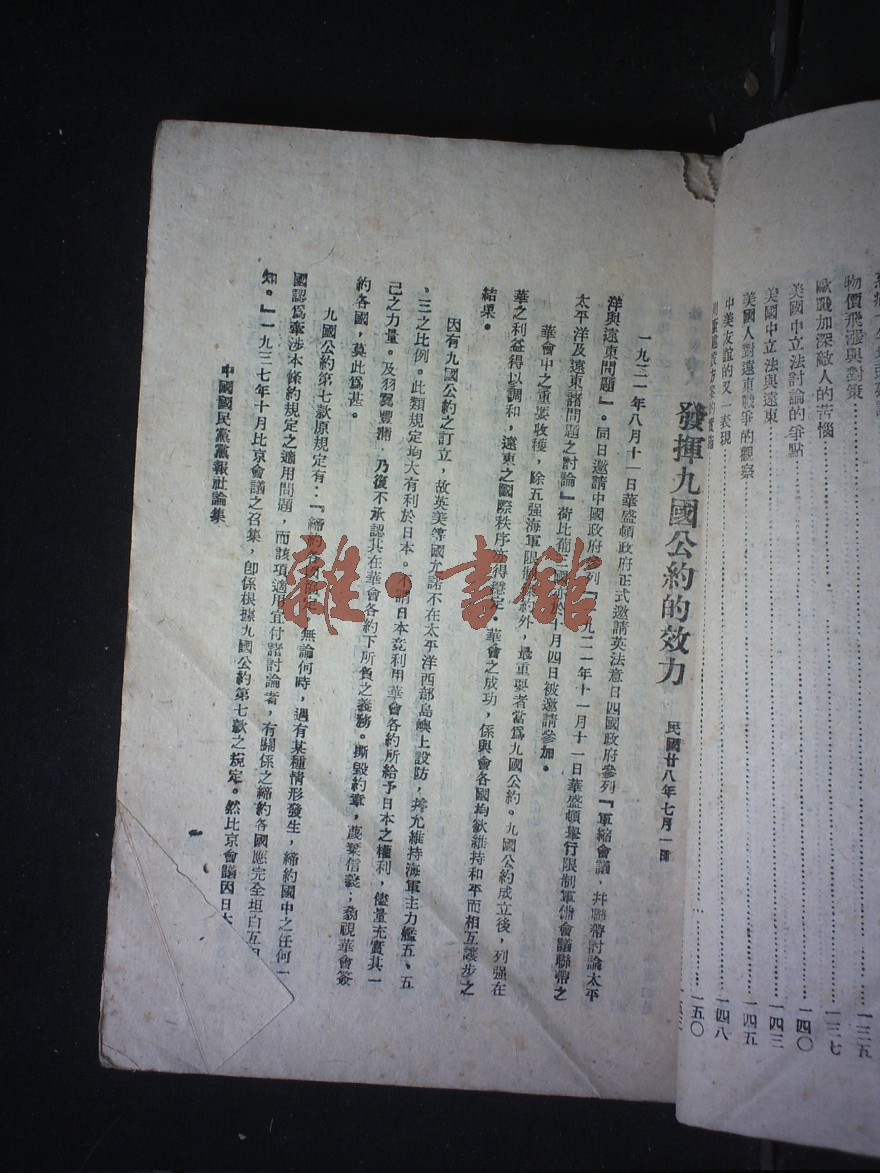 物價飛漲與對策……一三五
歐戰加深敵人的苦惱……一三七
美國中立法討論的爭點……一四〇
美國中立法與遠東……一四三
美國人對遠東戰爭的觀察……一四五
中美友誼的又一表現……一四八
一五〇
發揮九國公約的效力
民國廿八年七月一日
一九二一年八月十一日華盛頓政府正式邀請英法意日四國政府參列『軍縮會議，幷聯帶討論太平
洋與遠東問題』。同日邀請中國政府參列『一九二一年十一月十一日華盛頓舉行限制軍備會議聯帶之
太平洋及遠東諸問題之討論』荷比葡三國亦於十月四日被邀請參加。
華會中之重要收穫，除五强海軍限制條約外，最重要者當爲九國公約。九國公約成立後，列强在
華之利益得以調和，遠東之國際秩序亦得穩定。華會之成功，係與會各國均欲維持和平而相互讓步之
結果。
因有九國公約之訂立，故英美等國允諾不在太平洋西部島嶼上設防，幷允維持海軍主力艦五、五
、三之比例。此類規定均大有利於日本。不謂日本竟利用華會各約所給予日本之權利，儘量充實其一
己之力量。及羽翼豐滿，乃復不承認其在華會各約下所負之義務。撕毀約章，蔑棄信義；藐視華會簽
約各國，莫此爲甚。
九國公約第七款原規定有：『締約各國 無論何時，遇有某種情形發生，締約國中之任何一
國認爲牽涉本條約規定之適用問題，而該項適用宜付諸討論者，有關係之締約各國應完全坦白互相
知。』一九三七年十月比京會議之召集，卽係根據九國公約第七款之規定。然比京會議因日本
中國國民黨黨報社論集
雜·書館